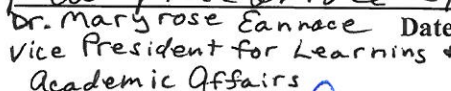 Dr. Maryrose Eannace Date
Vice President for Learning &
Academic Affairs